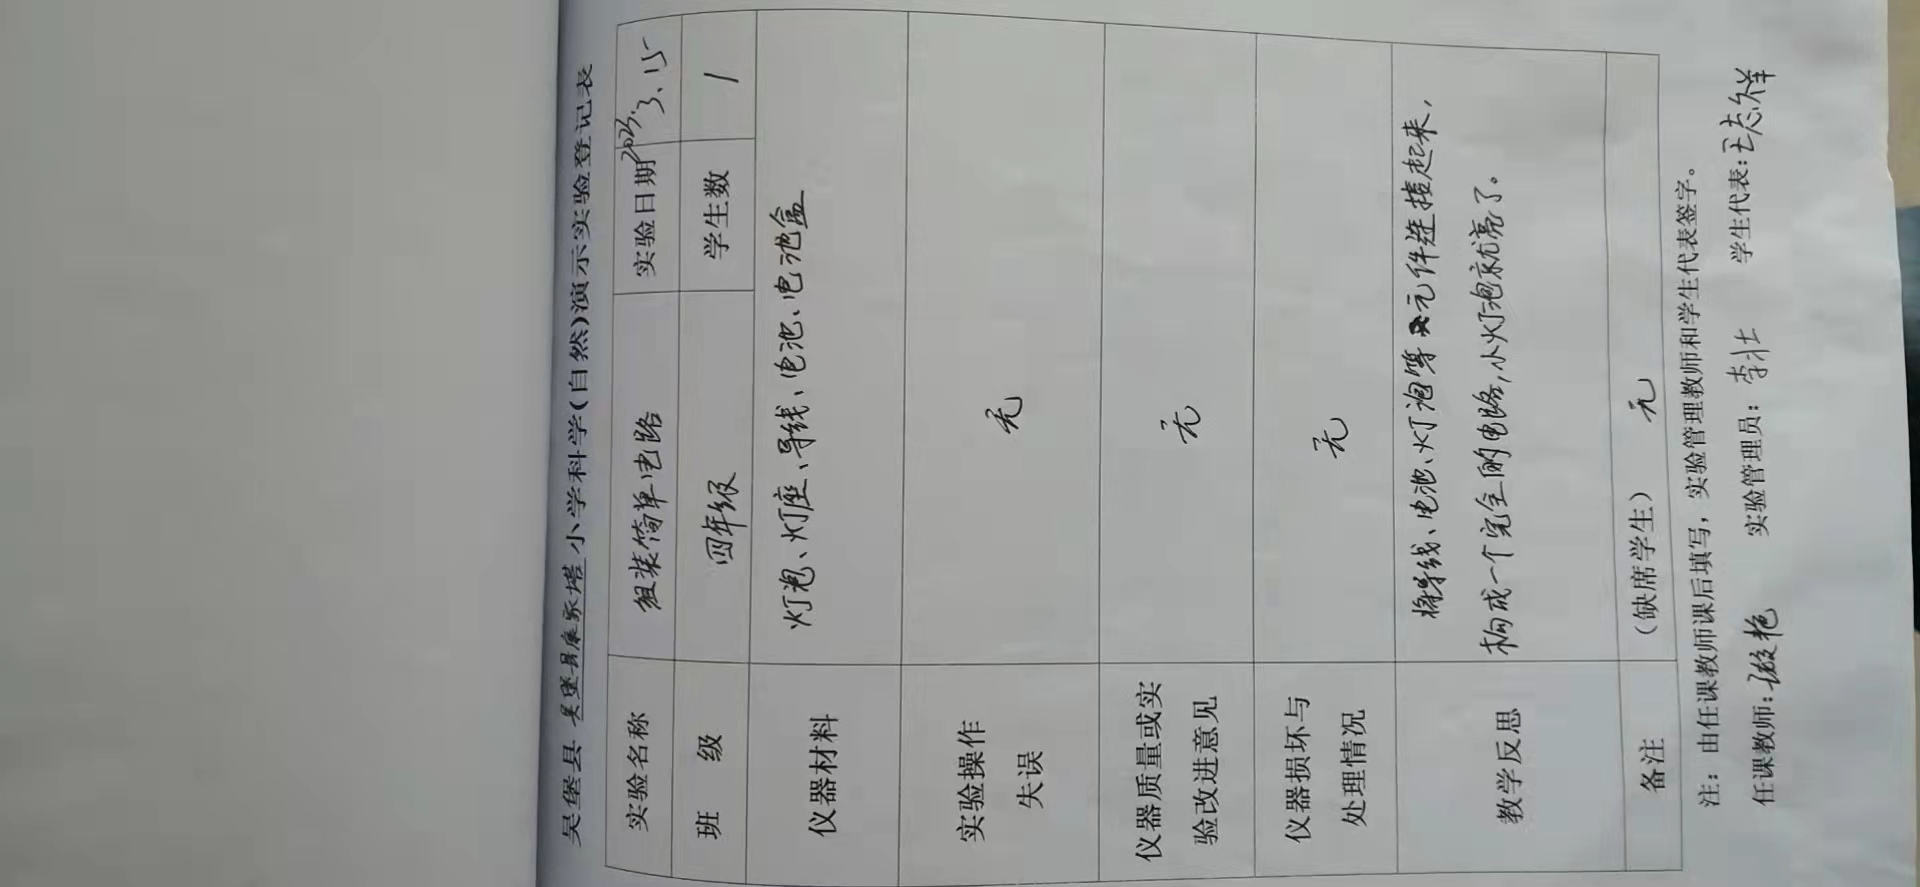 吴堡县 吴堡县康家塔 小学科学(自然)演示实验登记表
实验名称 组装简单电路 实验日期 2023.3.15
班 级 四年级 学生数 1
仪器材料 灯泡、灯座、导线、电池、电池盒
实验操作
失误 无
仪器质量或实
验改进意见 无
仪器损坏与
处理情况 无
教学反思 将导线、电池、灯泡等元件连接起来,
构成一个完全的电路,小灯泡就亮了。
备注 (缺席学生) 无
注:由任课教师课后填写,实验管理教师和学生代表签字。
任课教师: 实验管理员:李壮 学生代表:王志祥